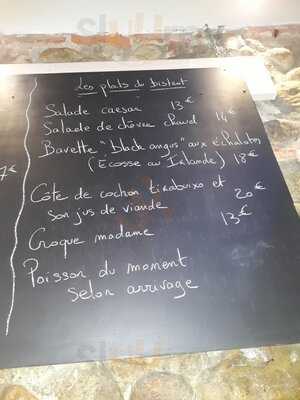 Les plats du bistrot
Salade caesar 13€
Salade de chèvre chaud 14€
Bavette "black angus" aux échalotes
(Écosse ou Irlande) 18€
7€
Côte de cochon
son jus de viande 20€
Croque madame 13€
Poisson du moment
selon arrivage